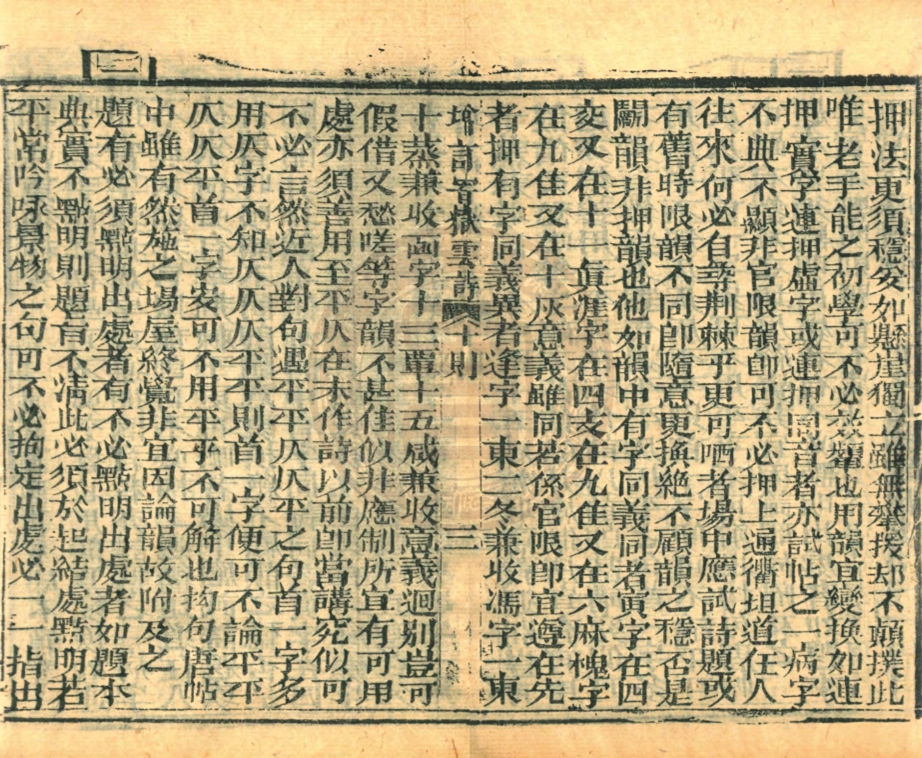 押法更須穩妥如懸崖獨立雖無攀援却不顛撲此
唯老手能之初學可不必效顰也用韻宜變換如連
押實字連押虛字或連押同音者亦試帖之一病字
不典不顯非官限韻卽可不必押上通衢坦道任人
往來何必自尋荆棘乎更可哂者場中應試詩題或
有舊時限韻不同卽隨意更換絕不顧韻之穩否是
鬭韻非押韻也他如韻中有字同義同者寅字在四
支又在十一眞涯字在四支在九佳又在六麻槐字
在九佳又在十灰意義雖同若係官限卽宜遵在先
者押有字同義異者逢字一東二冬兼收馮字一東
增訂寄嶽雲詩 十則 三
十蒸兼收函字十三覃十五咸兼收意義迥别豈可
假借又愁嗟等字韻不甚佳似非應制所宜有可用
處亦須善用至平仄在未作詩以前卽當講究似可
不必言然近人對句遇平平仄仄平之句首一字多
用仄字不知仄仄仄平平則首一字便可不論平平
仄仄平首一字安可不用平乎不可解也拘句唐帖
中雖有然施之場屋終覺非宜因論韻故附及之
題有必須點明出處者有不必點明出處者如題本
典實不點明則題旨不淸此必須於起結處點明若
平常吟咏景物之句可不必拘定出處必一一指出